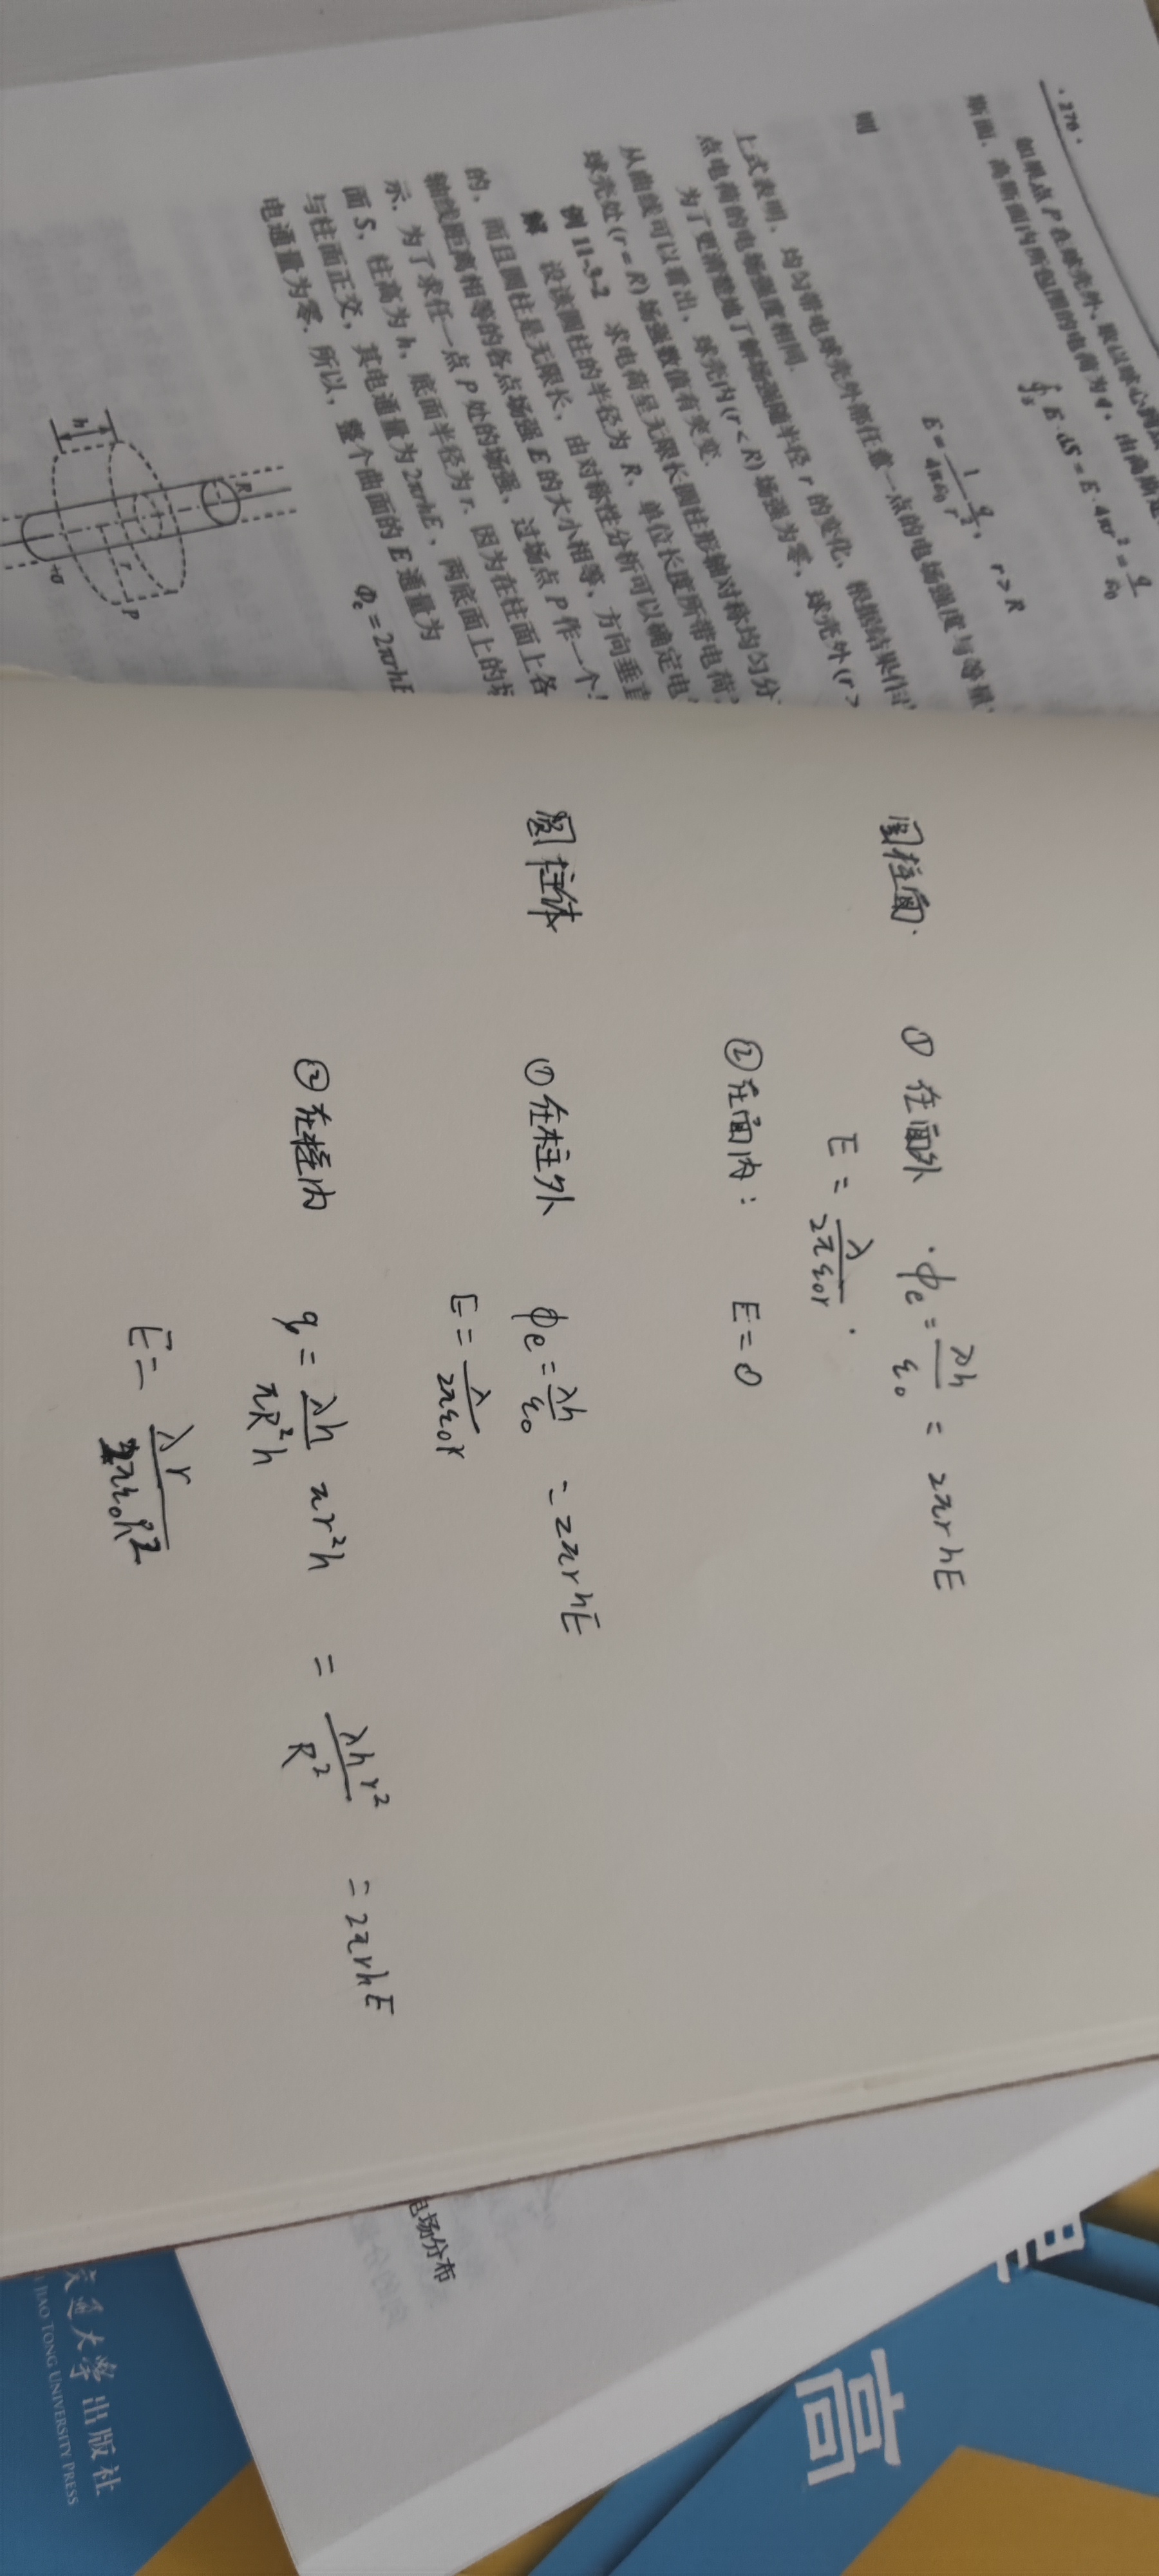 · 276 ·
如果点 P 在球壳外,
斯面, 高斯面内所包围的电荷为 q, 由高斯定
∮s E · dS = E · 4πr² = q/ε0
则
E = 1/4πε0 q/r², r > R
上式表明, 均匀带电球壳外部任意一点的电场强度与等量
点电荷的电场强度相同.
为了更清楚地了解场强随半径 r 的变化, 根据结果作
从曲线可以看出, 球壳内 (r < R) 场强为零, 球壳外 (r >
球壳处 (r = R) 场强数值有突变.
例 11-3-2 求电荷呈无限长圆柱形轴对称均匀分
解 设该圆柱的半径为 R、单位长度所带电荷
的, 而且圆柱是无限长, 由对称性分析可以确定电
轴线距离相等的各点场强 E 的大小相等、方向垂直
示. 为了求任一点 P 处的场强, 过场点 P 作一个
面 S, 柱高为 h, 底面半径为 r. 因为在柱面上各
与柱面正交, 其电通量为 2πrhE、两底面上的场
电通量为零. 所以, 整个曲面的 E 通量为
Φe = 2πrhE
h
R
r
P
+σ
圆柱面.
① 在面外 · φe = λh/ε0 = 2πrhE
E = λ/2πε0r .
② 在面内: E = 0
圆柱体
① 在柱外 φe = λh/ε0 = 2πrhE
E = λ/2πε0r
② 在柱内 q = λh/πR²h πr²h = λhr²/R² = 2πrhE
E = λr/2πε0R²
电场分布
高
交通大学出版社
JIAO TONG UNIVERSITY PRESS